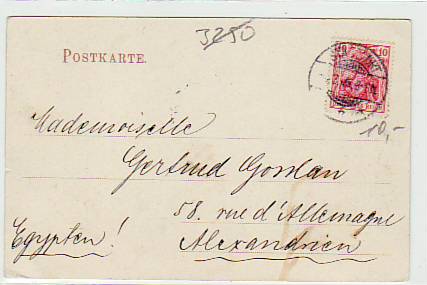 3250
POSTKARTE.
10
10,-
Mademoiselle
Gertrud Gordan
58. rue d'Allemagne
Egypten!
Alexandrien